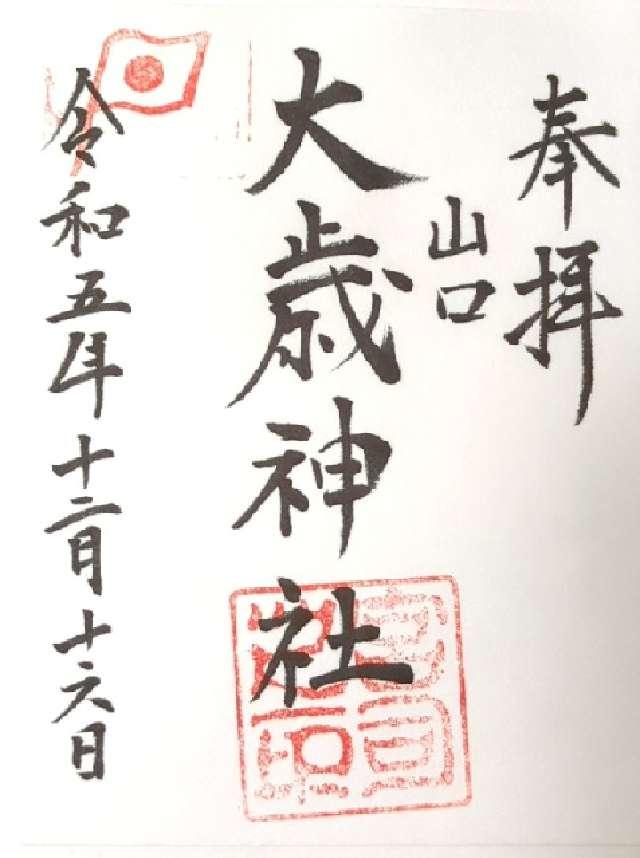 奉拝
山口
大歳神社
令和五年十二月十六日